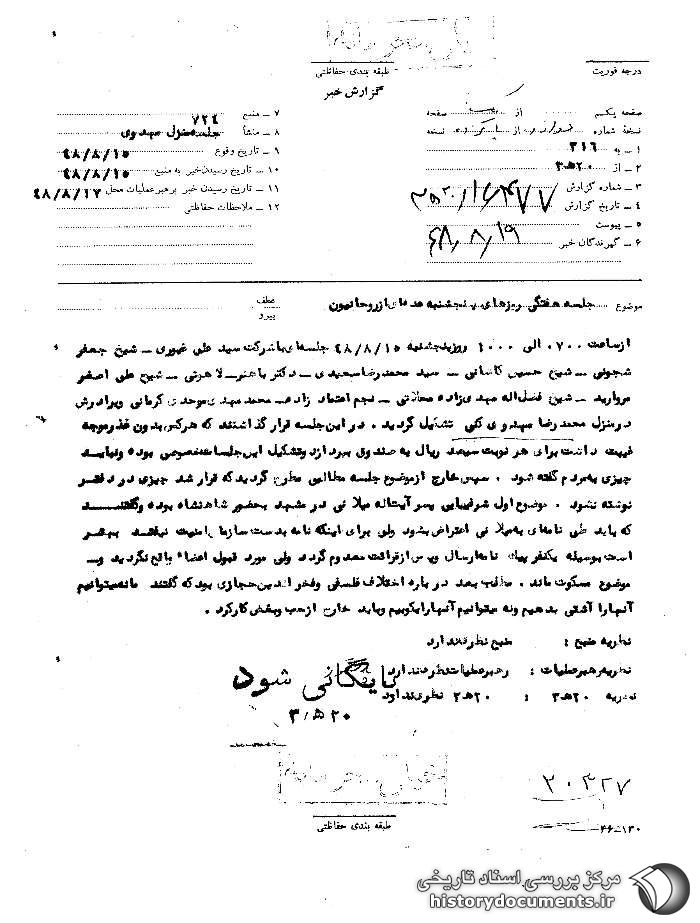 خیلی محرمانه
درجه فوریت
طبقه بندی حفاظتی
گزارش خبر
صفحه یکم از صفحه
نسخهٔ شماره از نسخه
۱ ـ به ۳۱۶
۲ ـ از ۲۰ه۳
۳ ـ شماره گزارش
۴ ـ تاریخ گزارش
۵ ـ پیوست
۶ ـ گیرندگان خبر
۴۸/۸/۱۹
۷ ـ منبع ۷۲۴
۸ ـ منشأ جلسه منزل مهدوی
۹ ـ تاریخ وقوع ۴۸/۸/۱۵
۱۰ ـ تاریخ رسیدن خبر به منبع ۴۸/۸/۱۵
۱۱ ـ تاریخ رسیدن خبر برهبر عملیات محل ۴۸/۸/۱۷
۱۲ ـ ملاحظات حفاظتی
موضوع جلسه هفتگی روزهای پنجشنبه عده‌ای از روحانیون
عطف
پیرو
از ساعت ۰۷۰۰ الی ۱۰۰۰ روز پنجشنبه ۴۸/۸/۱۵ جلسه‌ای با شرکت سید علی غیوری ـ شیخ جعفر
شجونی ـ شیخ حسین کاشانی ـ سید محمد رضا سعیدی ـ دکتر باهنر ـ لاهوتی ـ شیخ علی اصغر
مروارید ـ شیخ فضل‌اله مهدی‌زاده محلاتی ـ نجم اعتماد زاده ـ محمد مهدی موحدی کرمانی و برادرش
در منزل محمد رضا مهدوی کنی تشکیل گردید . در این جلسه قرار گذاشتند که هرکس بدون عذر موجه
غیبت داشت برای هر نوبت سیصد ریال به صندوق بپردازد و تشکیل این جلسات خصوصی بوده و نباید
چیزی به مردم گفته شود . سپس خارج از موضوع جلسه مطالبی مطرح گردید که قرار شد چیزی در دفتر
نوشته نشود . موضوع اول شرفیابی پسر آیت‌اله میلانی در مشهد بحضور شاهنشاه بوده و گفتند
که باید طی نامه‌ای به میلانی اعتراض بشود ولی برای اینکه نامه بدست سازمان امنیت نیافتد بهتر
است بوسیله یکنفر پیک نامه ارسال و پس از قرائت معدوم گردد ولی مورد قبول اعضاء واقع نگردید و
موضوع مسکوت ماند . مطلب بعد در باره اختلاف فلسفی و فخرالدین حجازی بود که گفتند ما نه میتوانیم
آنها را آشتی بدهیم و نه میتوانیم آنها را بکوبیم و باید خارج از حب و بغض کار کرد .
نظریه منبع : منبع نظری ندارد
نظریه رهبر عملیات : رهبر عملیات نظری ندارد
نظریه ۲۰ه۳ : ۲۰ه۳ نظری ندارد
بایگانی شود
۲۰ه۳
خیلی محرمانه
طبقه بندی حفاظتی
۲۰۳۲۷
۴۶-۱۳۰
مرکز بررسی اسناد تاریخی
historydocuments.ir